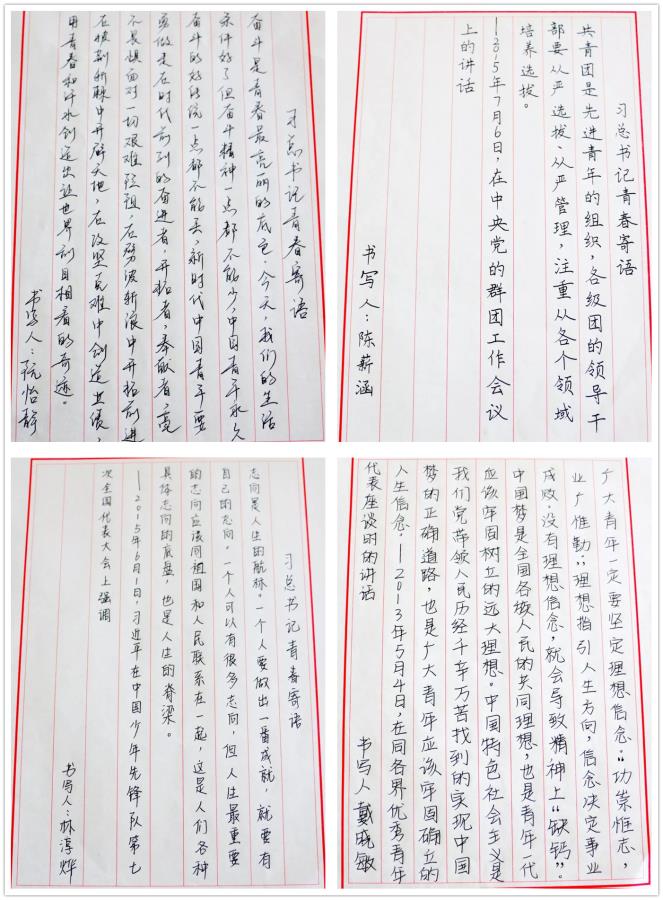 习总书记青春寄语
奋斗是青春最亮丽的底色。今天,我们的生活
条件好了但奋斗精神一点都不能少,中国青年永久
奋斗的好传统一点都不能丢,新时代中国青年要
勇做走在时代前列的奋进者,开拓者,奉献者,毫
不畏惧面对一切艰难险阻,在劈波斩浪中开拓前进
在披荆斩棘中开辟天地,在攻坚克难中创造业绩,
用青春和汗水创造出让世界刮目相看的奇迹。
书写人:阮怡静
习总书记青春寄语
共青团是先进青年的组织,各级团的领导干
部要从严选拔、从严管理,注重从各个领域
培养选拔。
—2015年7月6日,在中央党的群团工作会议
上的讲话
书写人:陈薪涵
习总书记青春寄语
志向是人生的航标。一个人要做出一番成就,就要有
自己的志向。一个人可以有很多志向,但人生最重要
的志向应该同祖国和人民联系在一起,这是人们各种
具体志向的底盘,也是人生的脊梁。
—2015年6月1日,习近平在中国少年先锋队第七
次全国代表大会上强调
书写人:林淳烨
广大青年一定要坚定理想信念。“功崇惟志,
业广惟勤;”理想指引人生方向,信念决定事业
成败。没有理想信念,就会导致精神上“缺钙”。
中国梦是全国各族人民的共同理想,也是青年一代
应该牢固树立的远大理想。中国特色社会主义是
我们党带领人民历经千辛万苦找到的实现中国
梦的正确道路,也是广大青年应该牢固确立的
人生信念。—2013年5月4日,在同各界优秀青年
代表座谈时的讲话
书写人戴晓敏